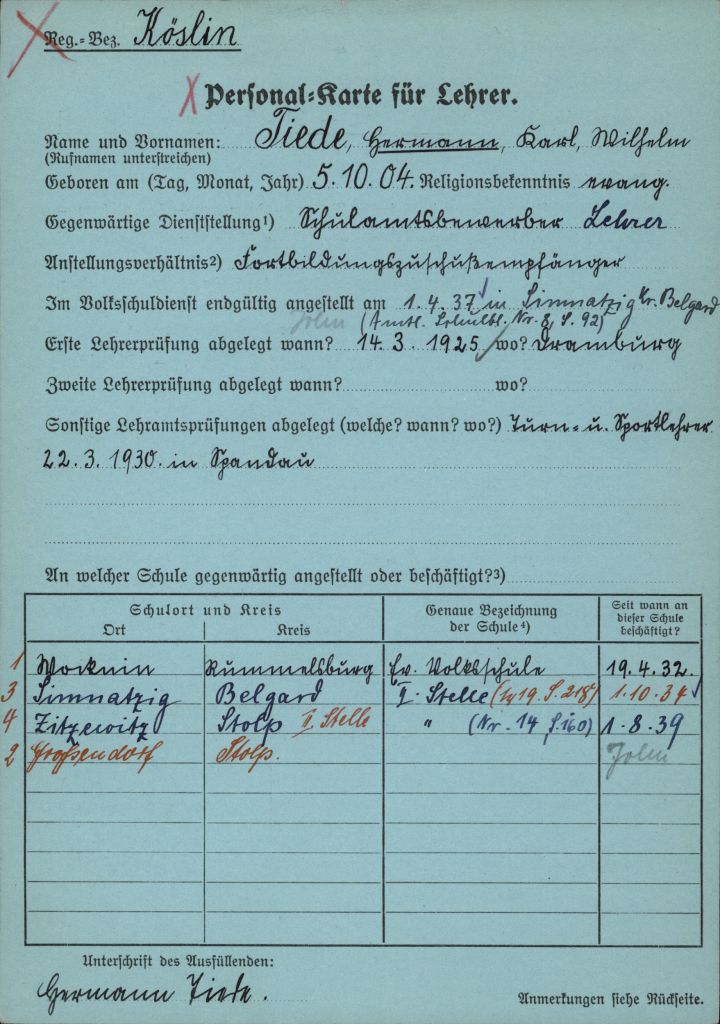 Reg.=Bez. Köslin
Personal=Karte für Lehrer.
Name und Vornamen: Tiede, Hermann, Karl, Wilhelm
(Rufnamen unterstreichen)
Geboren am (Tag, Monat, Jahr) 5.10.04. Religionsbekenntnis evang.
Gegenwärtige Dienststellung¹) Schulamtsbewerber Lehrer
Anstellungsverhältnis²) Fortbildungszuschußempfänger
Im Volksschuldienst endgültig angestellt am 1.4.37 in Simmatzig Kr. Belgard
(Amtl. Schulbl. Nr. 8, S. 92)
Erste Lehrerprüfung abgelegt wann? 14.3.1925 wo? Dramburg
Zweite Lehrerprüfung abgelegt wann? wo?
Sonstige Lehramtsprüfungen abgelegt (welche? wann? wo?) Turn= u. Sportlehrer
22.3.1930. in Spandau
An welcher Schule gegenwärtig angestellt oder beschäftigt?³)
Schulort und Kreis
Ort Kreis
Genaue Bezeichnung der Schule⁴)
Seit wann an dieser Schule beschäftigt?
1 Wocknin Rummelsburg Ev. Volksschule 19.4.32.
3 Simmatzig Belgard I. Stelle S. 218) 1.10.34
4 Zitzewitz Stolp II. Stelle " (Nr. 14 S. 160) 1.8.39
2 Großendorf Stolp.
Unterschrift des Ausfüllenden:
Hermann Tiede.
Anmerkungen siehe Rückseite.